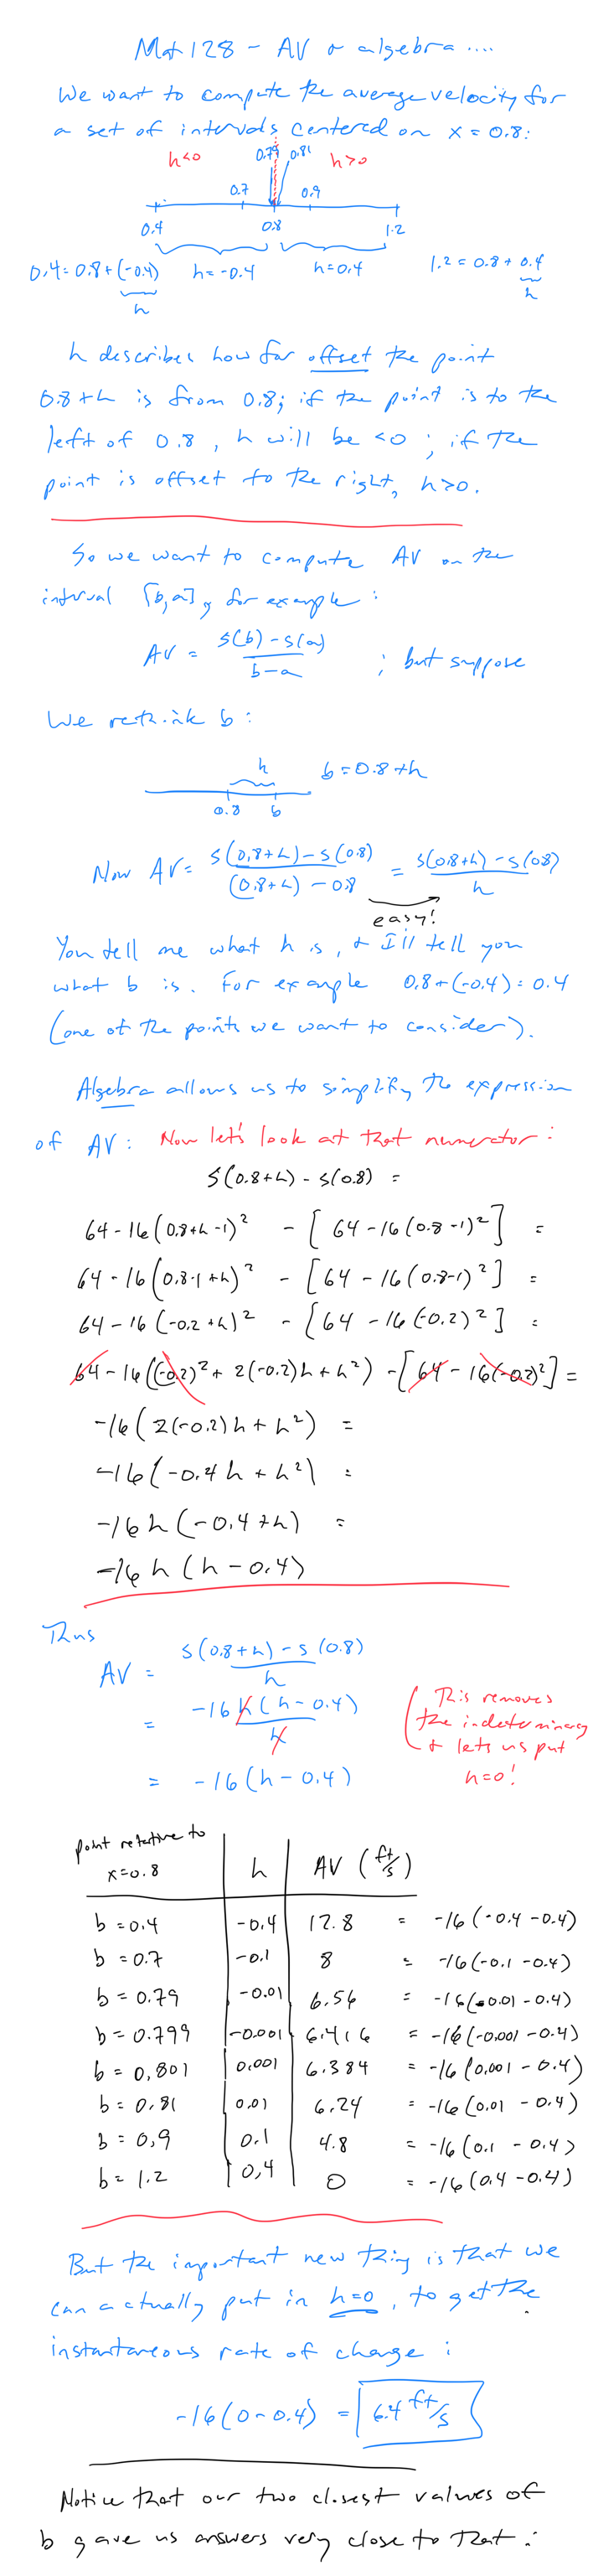 Mat 128 - AV & algebra ....
We want to compute the average velocity for
a set of intervals centered on x = 0.8:
h<0 0.79 0.81 h>0
0.7 0.9
0.4 0.8 1.2
0.4 = 0.8 + (-0.4) h = -0.4 h = 0.4 1.2 = 0.8 + 0.4
h h
h describes how far offset the point
0.8+h is from 0.8; if the point is to the
left of 0.8, h will be <0; if the
point is offset to the right, h>0.
So we want to compute AV on the
interval [b,a], for example:
AV = s(b) - s(a) / b-a ; but suppose
We rethink b:
h b = 0.8+h
0.8 b
Now AV = s(0.8+h) - s(0.8) / (0.8+h) - 0.8 = s(0.8+h) - s(0.8) / h
easy!
You tell me what h is, & I'll tell you
what b is. For example 0.8+(-0.4) = 0.4
(one of the points we want to consider).
Algebra allows us to simplify the expression
of AV: Now let's look at that numerator:
s(0.8+h) - s(0.8) =
64 - 16(0.8+h-1)² - [64 - 16(0.8-1)²] =
64 - 16(0.8-1+h)² - [64 - 16(0.8-1)²] =
64 - 16(-0.2+h)² - [64 - 16(-0.2)²] =
64 - 16((-0.2)² + 2(-0.2)h + h²) - [64 - 16(-0.2)²] =
-16(2(-0.2)h + h²) =
-16(-0.4h + h²) =
-16h(-0.4+h) =
-16h(h-0.4)
Thus
AV = s(0.8+h) - s(0.8) / h
= -16h(h-0.4) / h
= -16(h-0.4)
This removes
the indeterminacy
& lets us put
h=0!
point relative to x=0.8 h AV (ft/s)
b = 0.4 -0.4 12.8 = -16(-0.4-0.4)
b = 0.7 -0.1 8 = -16(-0.1-0.4)
b = 0.79 -0.01 6.56 = -16(-0.01-0.4)
b = 0.799 -0.001 6.416 = -16(-0.001-0.4)
b = 0.801 0.001 6.384 = -16(0.001-0.4)
b = 0.81 0.01 6.24 = -16(0.01-0.4)
b = 0.9 0.1 4.8 = -16(0.1-0.4)
b = 1.2 0.4 0 = -16(0.4-0.4)
But the important new thing is that we
can actually put in h=0, to get the
instantaneous rate of change:
-16(0-0.4) = 6.4 ft/s
Notice that our two closest values of
b gave us answers very close to that: